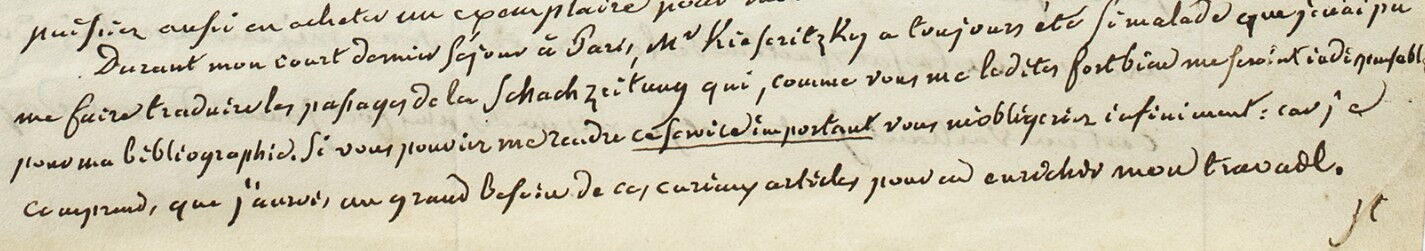 puissiez aussi en acheter un exemplaire pour
Durant mon court dernier séjour à Paris, Mr Kieseritzky a toujours été si malade que je n'ai pu
me faire traduire les passages de la Schachzeitung qui, comme vous me le dites fort bien me seroient indispensabl
pour ma bibliographie. Si vous pouviez me rendre ce service important vous m'obligeriez infiniment: car je
comprends, que j'aurois un grand besoin de ces curieux articles pour en enrichir mon travail.